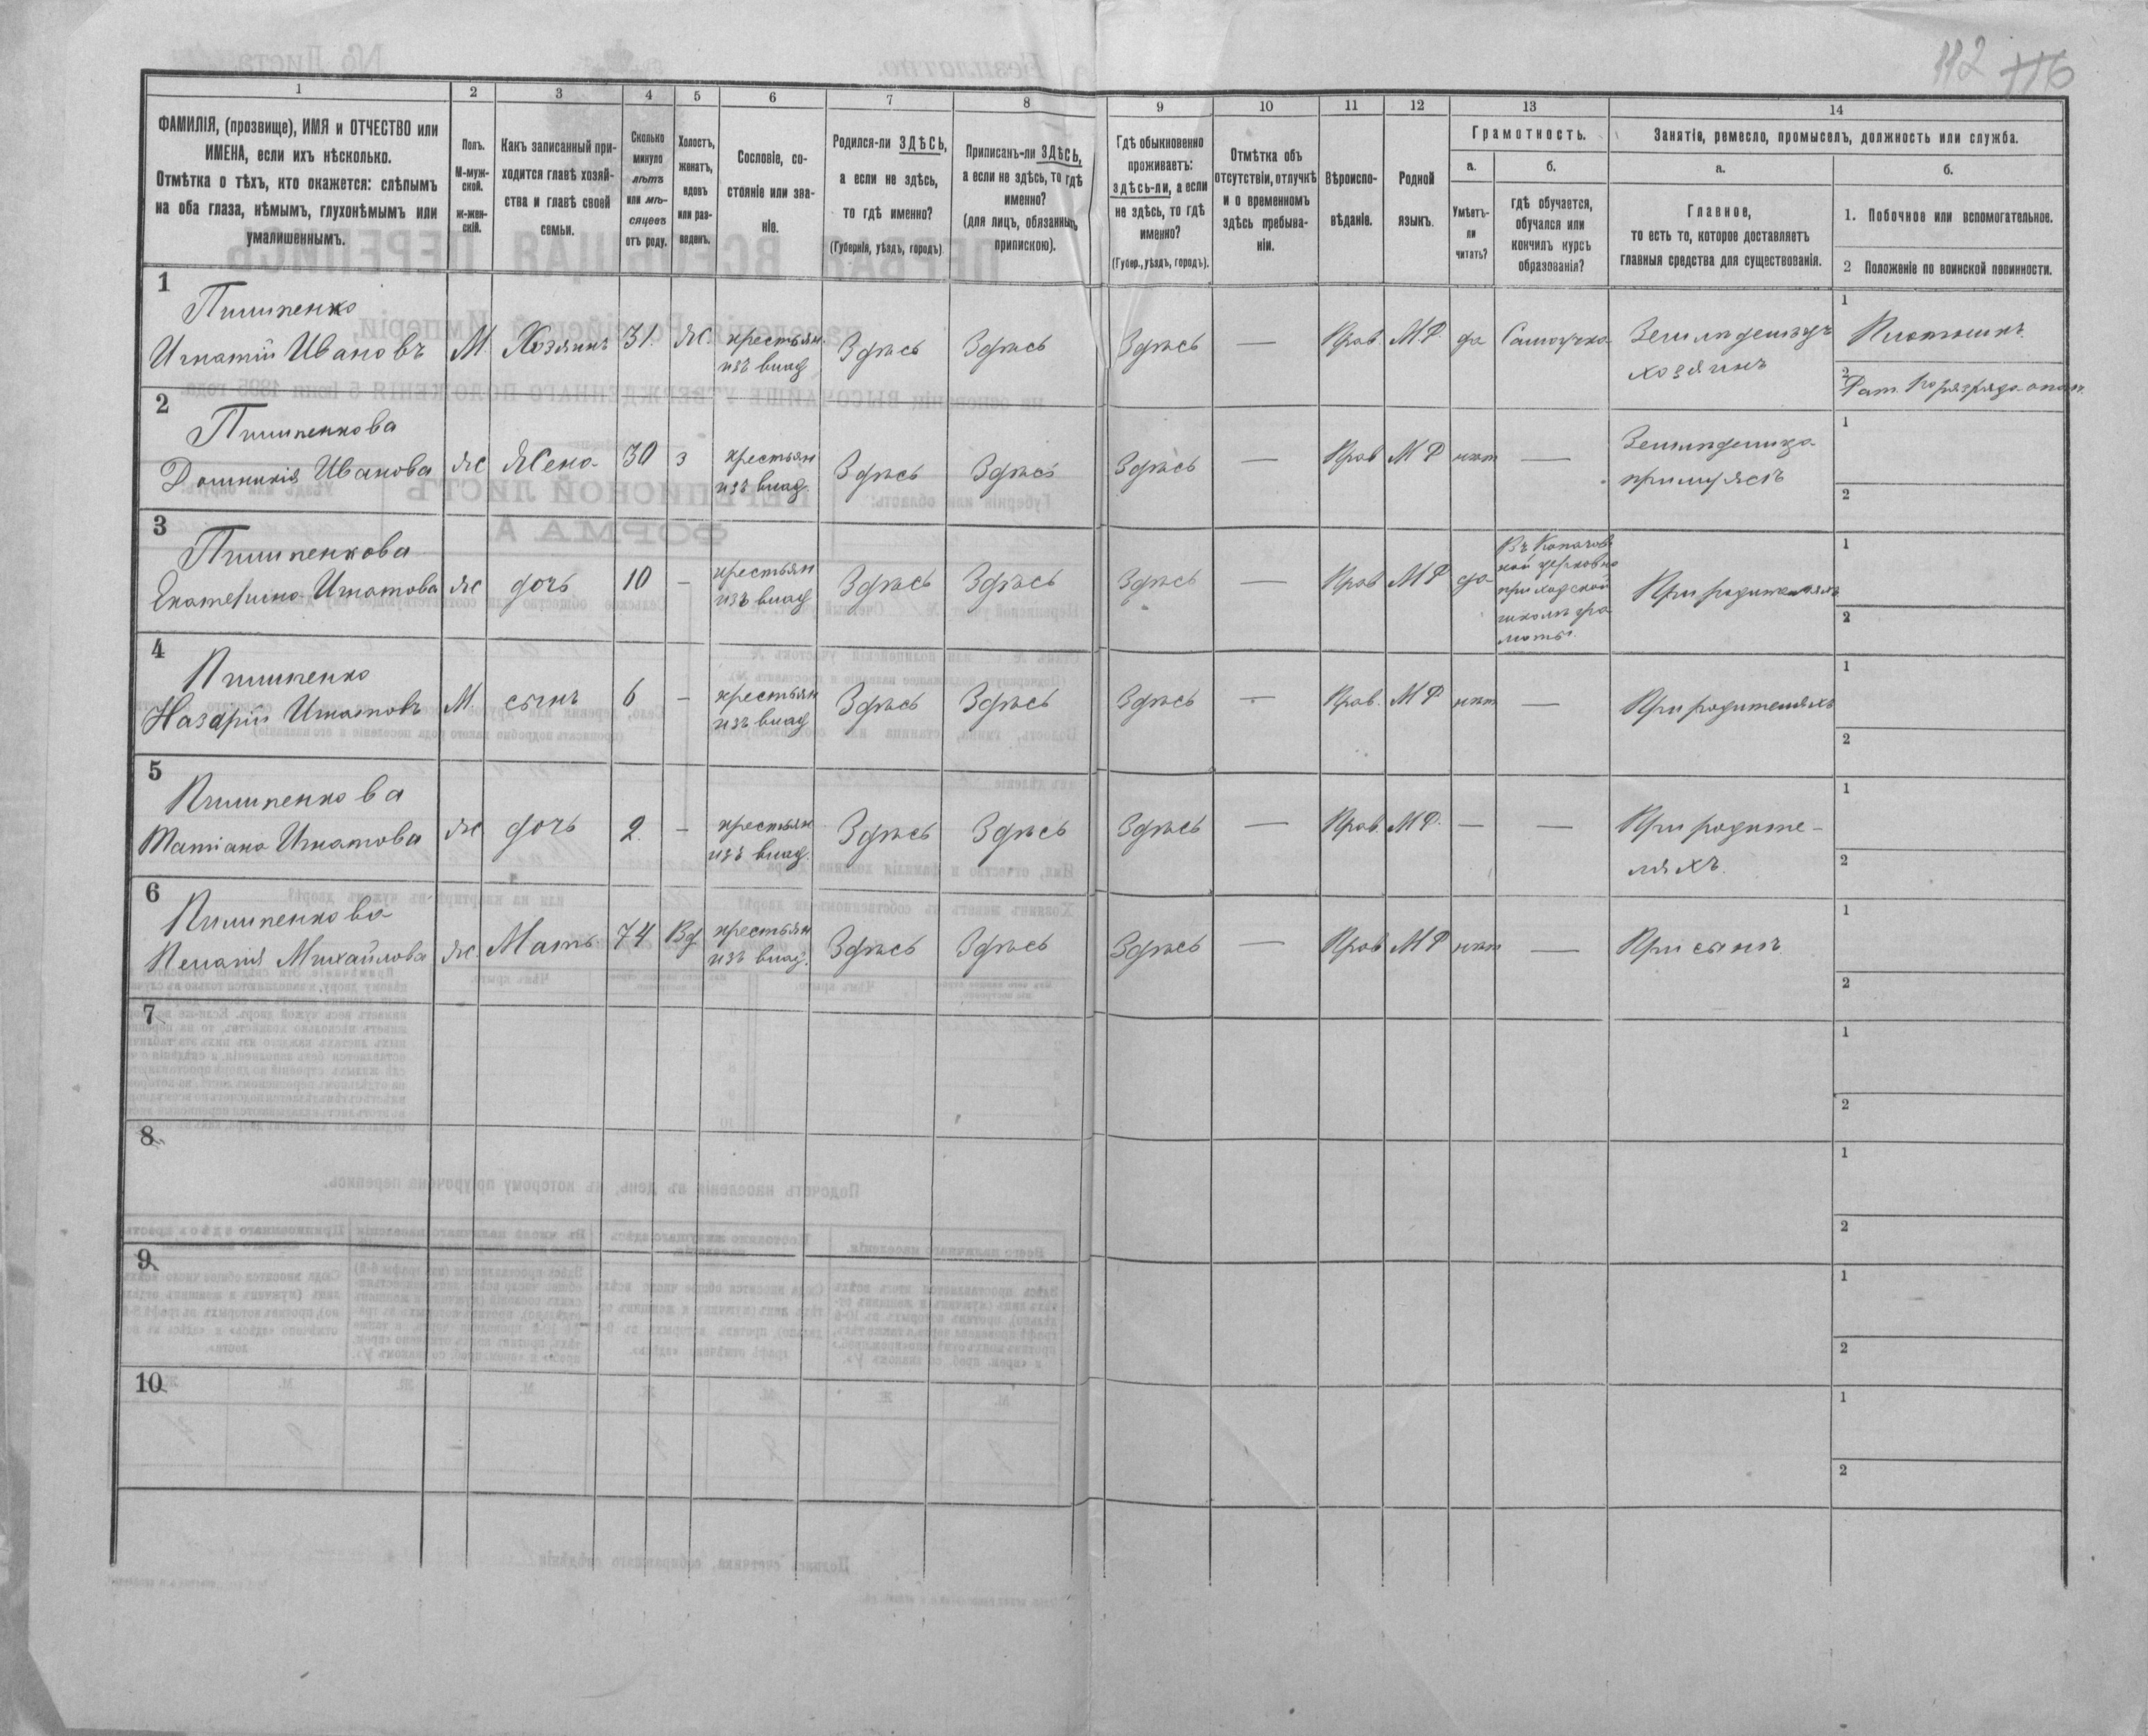 112 116
1 2 3 4 5 6 7 8 9 10 11 12 13 14
ФАМИЛІЯ, (прозвище), ИМЯ и ОТЧЕСТВО или
ИМЕНА, если ихъ нѣсколько.
Отмѣтка о тѣхъ, кто окажется: слѣпымъ
на оба глаза, нѣмымъ, глухонѣмымъ или
умалишеннымъ.
Полъ.
М-муж-
ской.
ж-жен-
скій.
Какъ записанный при-
ходится главѣ хозяй-
ства и главѣ своей
семьи.
Сколько
минуло
лѣтъ
или мѣ-
сяцевъ
отъ роду.
Холостъ,
женатъ,
вдовъ
или раз-
веденъ.
Сословіе, со-
стояніе или зва-
ніе.
Родился-ли ЗДѢСЬ,
а если не здѣсь,
то гдѣ именно?
(Губернія, уѣздъ, городъ)
Приписанъ-ли ЗДѢСЬ,
а если не здѣсь, то гдѣ
именно?
(для лицъ, обязанныхъ
припискою).
Гдѣ обыкновенно
проживаетъ:
здѣсь-ли, а если
не здѣсь, то гдѣ
именно?
(Губер., уѣздъ, городъ).
Отмѣтка объ
отсутствіи, отлучкѣ
и о временномъ
здѣсь пребыва-
ніи.
Вѣроиспо-
вѣданіе.
Родной
языкъ.
Грамотность.
а.
Умѣетъ-
ли
читать?
б.
гдѣ обучается,
обучался или
кончилъ курсъ
образованія?
Занятіе, ремесло, промыселъ, должность или служба.
а.
Главное,
то есть то, которое доставляетъ
главныя средства для существованія.
б.
1. Побочное или вспомогательное.
2 Положеніе по воинской повинности.
1
Пилипенко
Игнатій Ивановъ М Хозяинъ 31. Ж. крестьян. Здѣсь Здѣсь Здѣсь — Прав. М.Р. да Самоучка Земледѣлецъ
изъ влад хозяинъ
1 Плотникъ
2
2
Пилипенкова
Домникія Иванова Ж Жена 30 з крестьян Здѣсь Здѣсь Здѣсь — Прав М Р нѣт — Земледѣлица
изъ влад. при мужѣ
1
2
3
Пилипенкова
Екатерина Игнатова Ж дочь 10 — крестьян Здѣсь Здѣсь Здѣсь — Прав М Р да
изъ влад
Въ
кой церковно
приходской
школѣ гра
моты.
При родителяхъ
1
2
4
Пилипенко
Назарій Игнатовъ М сынъ 6 — крестьян Здѣсь Здѣсь Здѣсь — Прав. М Р нѣт — При родителяхъ
изъ влад
1
2
5
Пилипенкова
Татіана Игнатова Ж дочь 2. — крестьян Здѣсь Здѣсь Здѣсь — Прав. М Р. — — При родите-
изъ влад. ляхъ.
1
2
6
Пилипенкова
Пелагія Михайлова Ж. Мать 74 Вд крестьян Здѣсь Здѣсь Здѣсь — Прав М Р нѣт — При сынѣ
изъ влад.
1
2
7
1
2
8
1
2
9
1
2
10
1
2